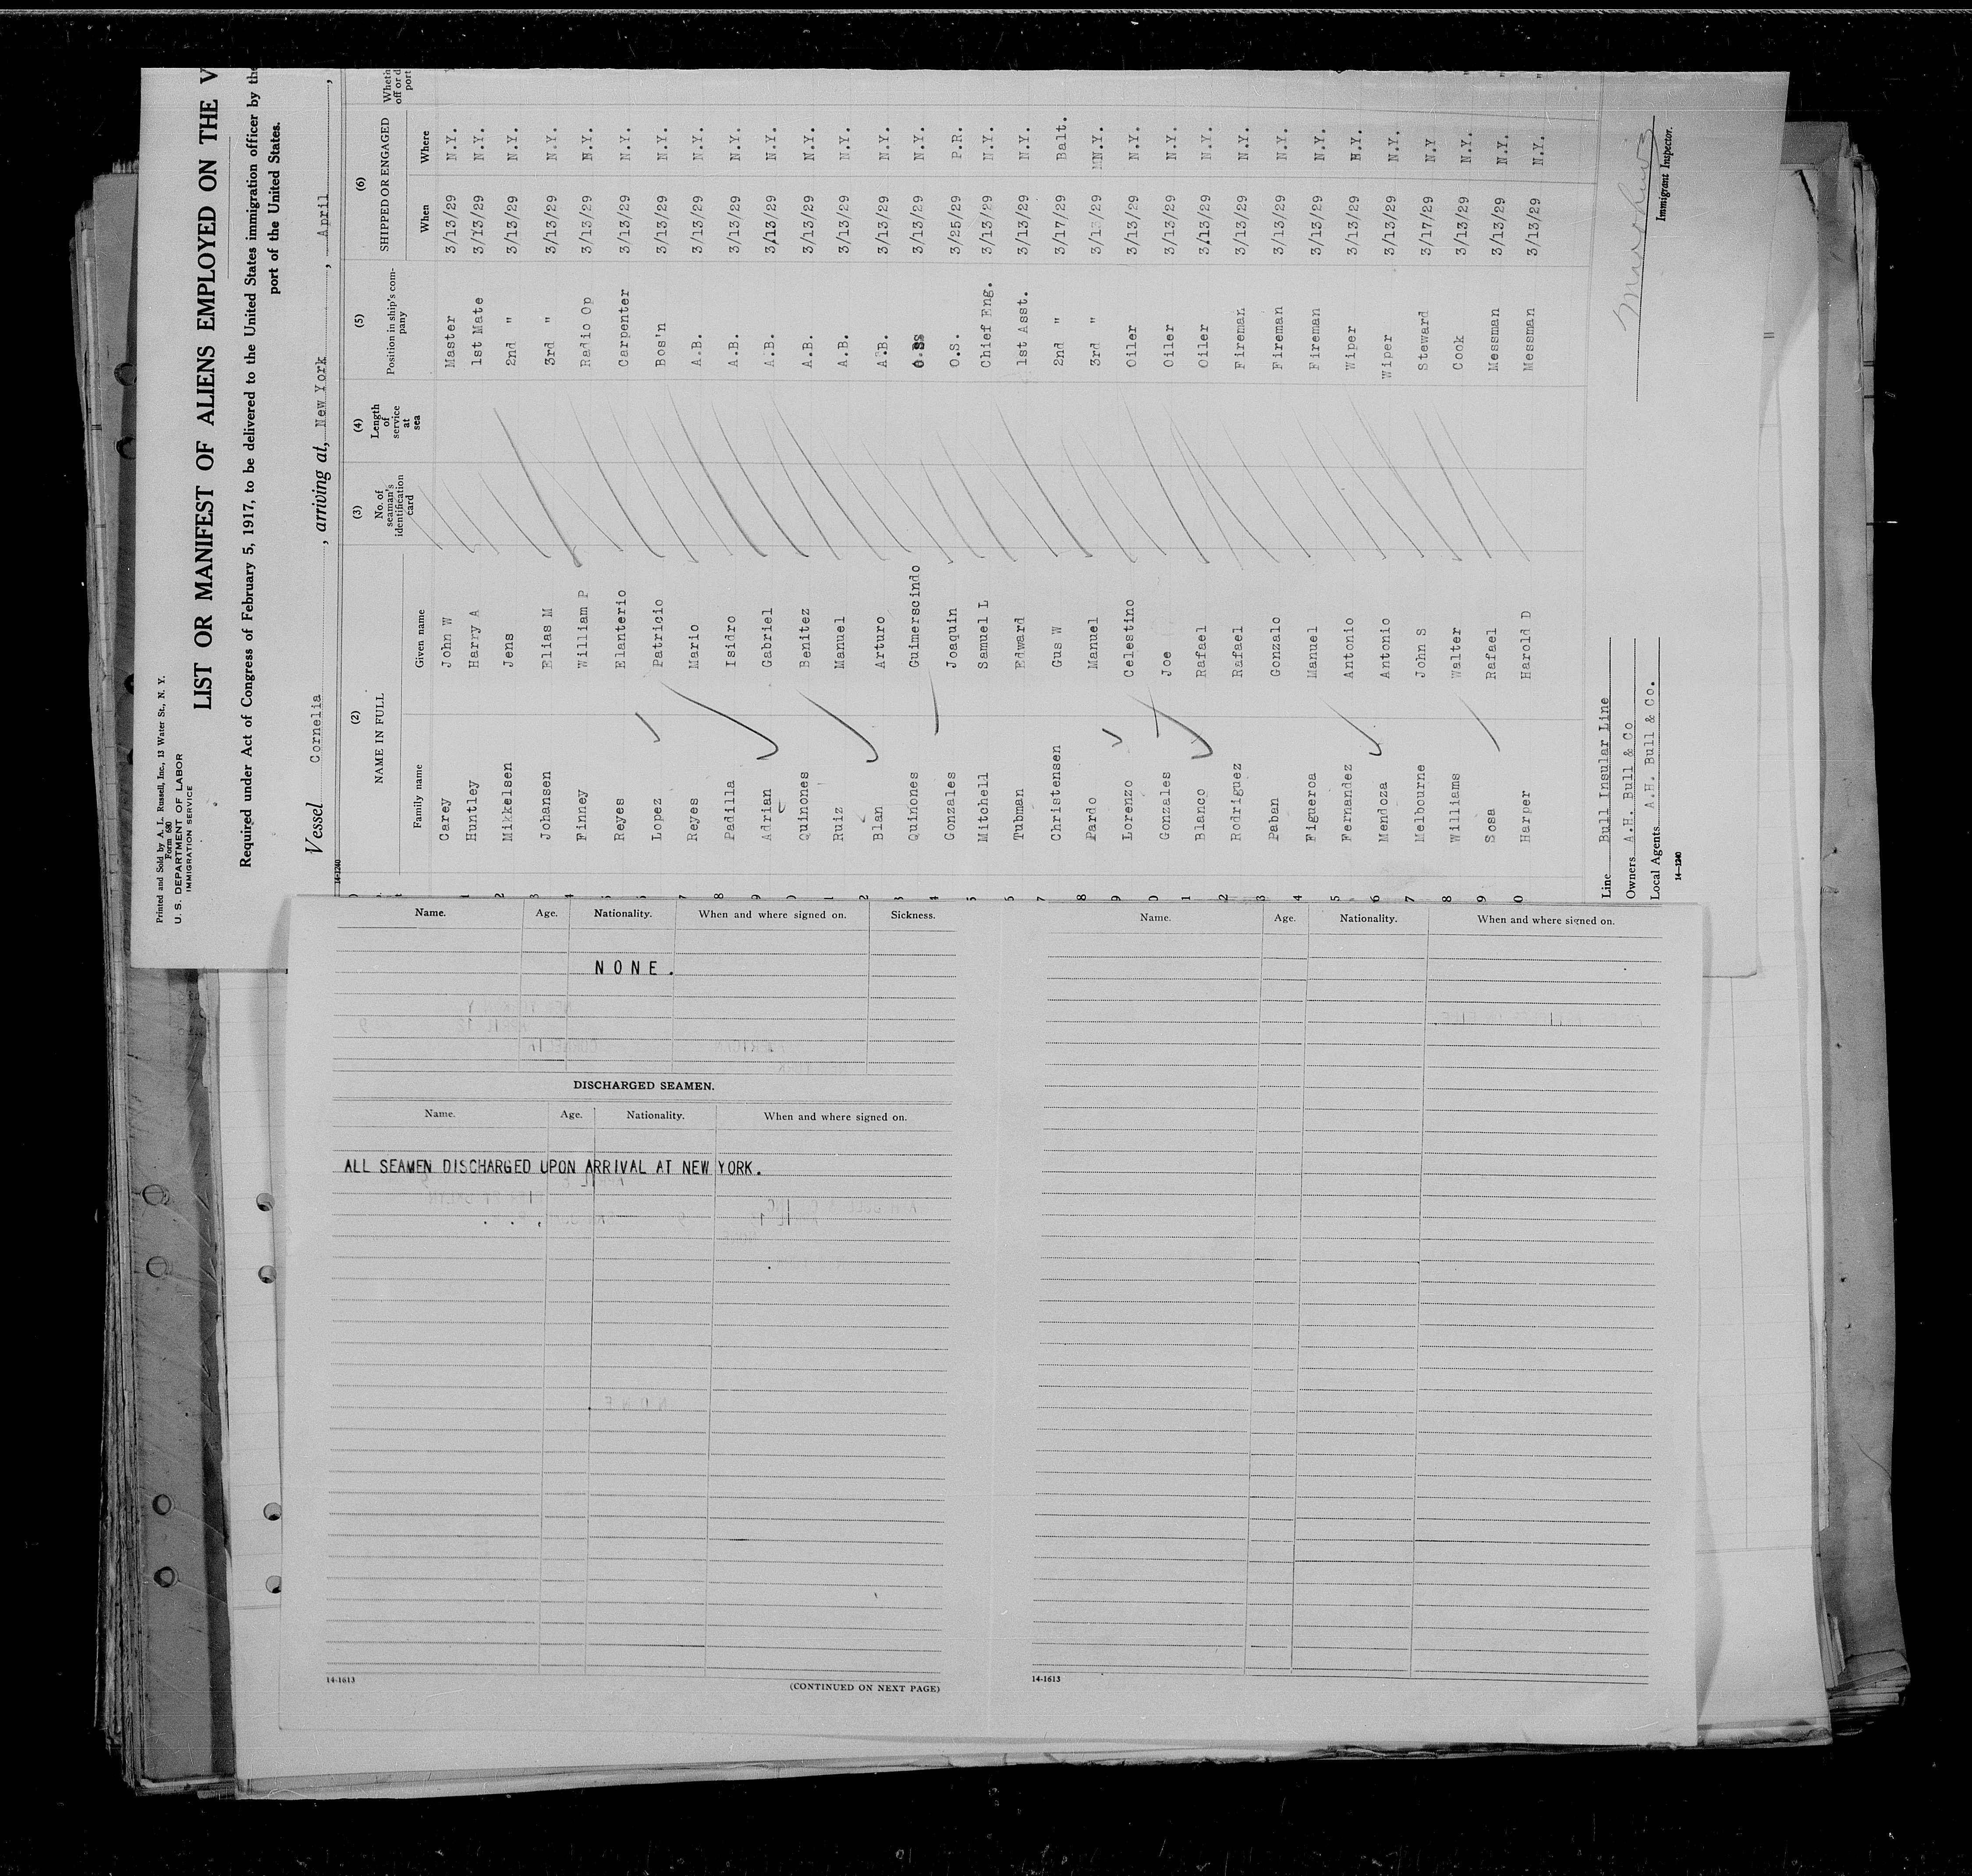 Printed and Sold by A. L. Russell, Inc., 13 Water St., N. Y.
Form 680
U. S. DEPARTMENT OF LABOR
IMMIGRATION SERVICE
LIST OR MANIFEST OF ALIENS EMPLOYED ON THE V
Required under Act of Congress of February 5, 1917, to be delivered to the United States immigration officer by the
port of the United States.
Vessel Cornelia , arriving at, New York , April ,
14-1240
(2) (3) (4) (5) (6)
NAME IN FULL No. of seaman's identification card Length of service at sea Position in ship's company SHIPPED OR ENGAGED Wheth off or d port
Family name Given name When Where
Carey John W Master 3/13/29 N.Y.
Huntley Harry A 1st Mate 3/13/29 N.Y.
Mikkelsen Jens 2nd " 3/13/29 N.Y.
Johansen Elias M 3rd " 3/13/29 N.Y.
Finney William P Radio Op 3/13/29 N.Y.
Reyes Elanterio Carpenter 3/13/29 N.Y.
Lopez Patricio Bos'n 3/13/29 N.Y.
Reyes Mario A.B. 3/13/29 N.Y.
Padilla Isidro A.B. 3/13/29 N.Y.
Adrian Gabriel A.B. 3/13/29 N.Y.
Quinones Benitez A.B. 3/13/29 N.Y.
Ruiz Manuel A.B. 3/13/29 N.Y.
Blan Arturo A.B. 3/13/29 N.Y.
Quinones Guimerscindo O.S. 3/13/29 N.Y.
Gonzales Joaquin O.S. 3/25/29 P.R.
Mitchell Samuel L Chief Eng. 3/13/29 N.Y.
Tubman Edward 1st Asst. 3/13/29 N.Y.
Christensen Gus W 2nd " 3/17/29 Balt.
Pardo Manuel 3rd " 3/13/29 N.Y.
Lorenzo Celestino Oiler 3/13/29 N.Y.
Gonzales Joe Oiler 3/13/29 N.Y.
Blanco Rafael Oiler 3/13/29 N.Y.
Rodriguez Rafael Fireman 3/13/29 N.Y.
Paban Gonzalo Fireman 3/13/29 N.Y.
Figueroa Manuel Fireman 3/13/29 N.Y.
Fernandez Antonio Wiper 3/13/29 N.Y.
Mendoza Antonio Wiper 3/13/29 N.Y.
Melbourne John S Steward 3/17/29 N.Y
Williams Walter Cook 3/13/29 N.Y.
Sosa Rafael Messman 3/13/29 N.Y.
Harper Harold D Messman 3/13/29 N.Y.
Line Bull Insular Line
Owners A.H. Bull & Co
Local Agents A.H. Bull & Co.
Immigrant Inspector.
14-1240
Name. Age. Nationality. When and where signed on. Sickness.
NONE.
DISCHARGED SEAMEN.
Name. Age. Nationality. When and where signed on.
ALL SEAMEN DISCHARGED UPON ARRIVAL AT NEW YORK.
14-1613
(CONTINUED ON NEXT PAGE)
Name. Age. Nationality. When and where signed on.
14-1613